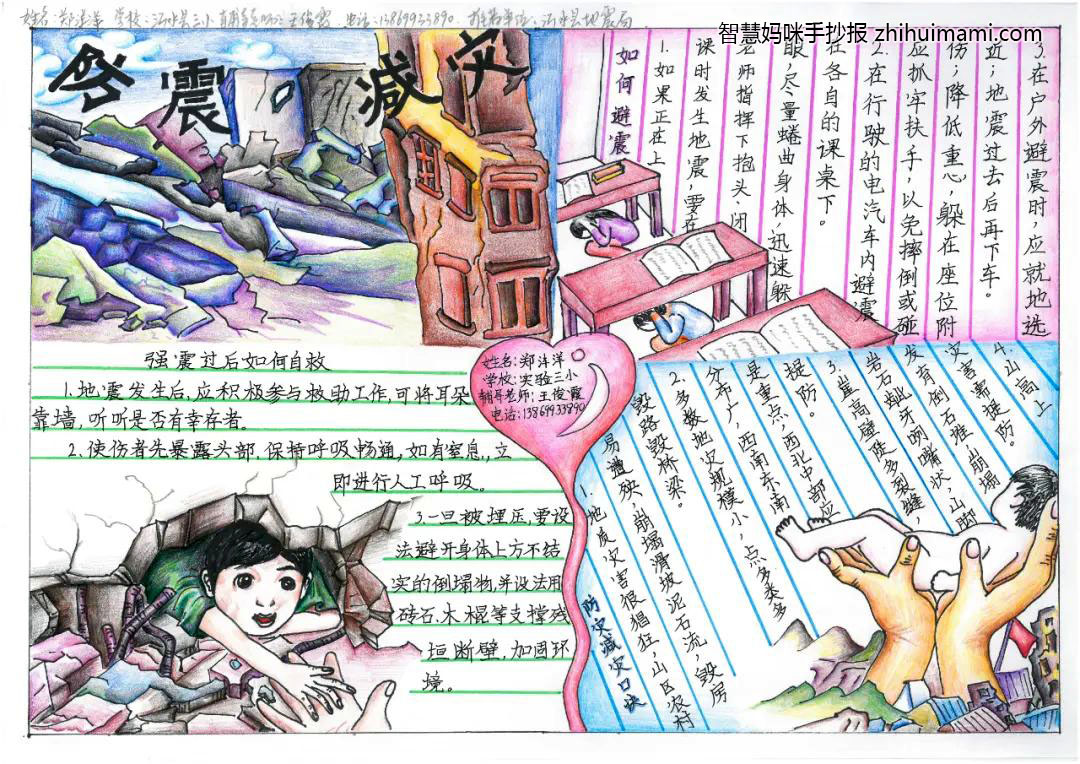 智慧妈咪手抄报 zhihuimami.com
防震减灾
如何避震
1.如果正在上
课时发生地震,要在
老师指挥下抱头、闭
眼,尽量蜷曲身体,迅速躲
在各自的课桌下。
2.在行驶的电汽车内避震
应抓牢扶手,以免摔倒或碰
伤;降低重心,躲在座位附
近;地震过去后再下车。
3.在户外避震时,应就地选
强震过后如何自救
1.地震发生后,应积极参与救助工作,可将耳朵
靠墙,听听是否有幸存者。
2.使伤者先暴露头部,保持呼吸畅通,如有窒息,立
即进行人工呼吸。
3.一旦被埋压,要设
法避开身体上方不结
实的倒塌物,并设法用
砖石、木棍等支撑残
垣断壁,加固环
境。
姓名:郑洋洋
学校:实验三小
辅导老师:王俊霞
电话:13869933890
防灾减灾口诀
1.地质灾害很猖狂,山区农村
易遭殃,崩塌滑坡泥石流,毁房
毁路毁桥梁。
2.多数地灾规模小,点多类多
分布广,西南东南
是重点,西北中部应
提防。
3.陡高壁陡多裂缝,
岩石龇牙咧嘴状,山脚
发育倒石堆,崩塌
灾害需提防。
4.山高上